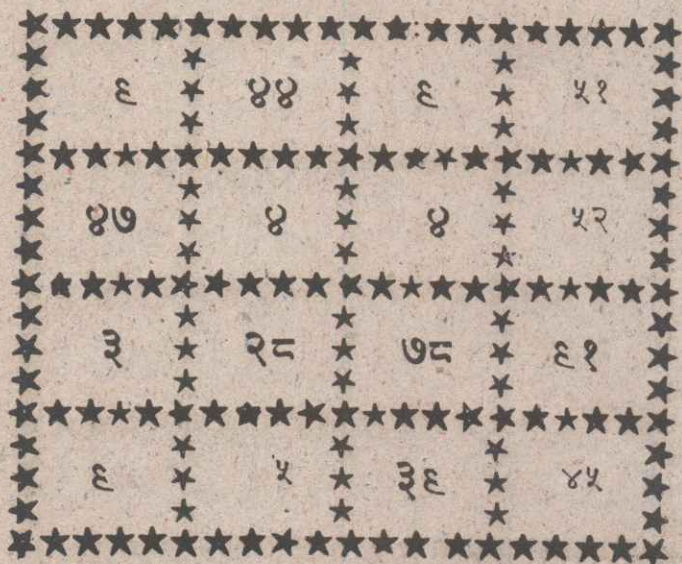 ६ ४४ ६ ५१
४७ ४ ४ ५२
३ २८ ७८ ६१
६ ५ ३६ ४५